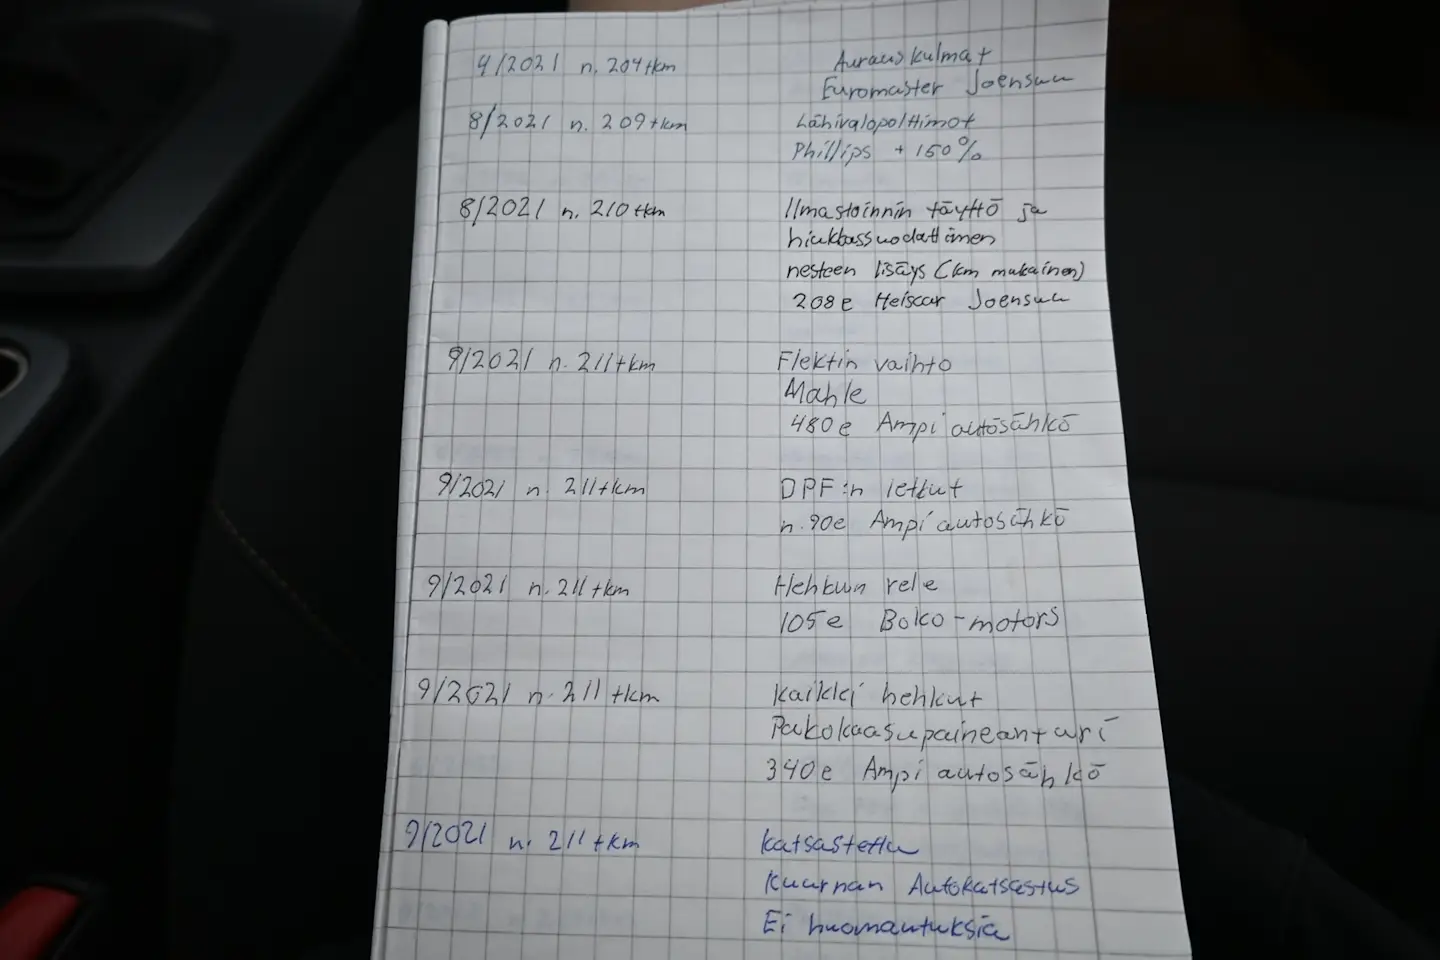 4/2021 n. 204tkm Aurauskulmat
Euromaster Joensuu
8/2021 n. 209tkm Lähivalopolttimot
Phillips + 150%
8/2021 n. 210tkm Ilmastoinnin täyttö ja
hiukkassuodattimen
nesteen lisäys (km mukainen)
208e Heiscar Joensuu
9/2021 n. 211tkm Flektin vaihto
Mahle
480e Ampi autosähkö
9/2021 n. 211tkm DPF:n letkut
n.90e Ampi autosähkö
9/2021 n. 211tkm Hehkun rele
105e Boko-motors
9/2021 n. 211tkm Kaikki hehkut
Pakokaasupaineanturi
340e Ampi autosähkö
9/2021 n. 211tkm Katsastettu
Kuurnan Autokatsastus
Ei huomautuksia